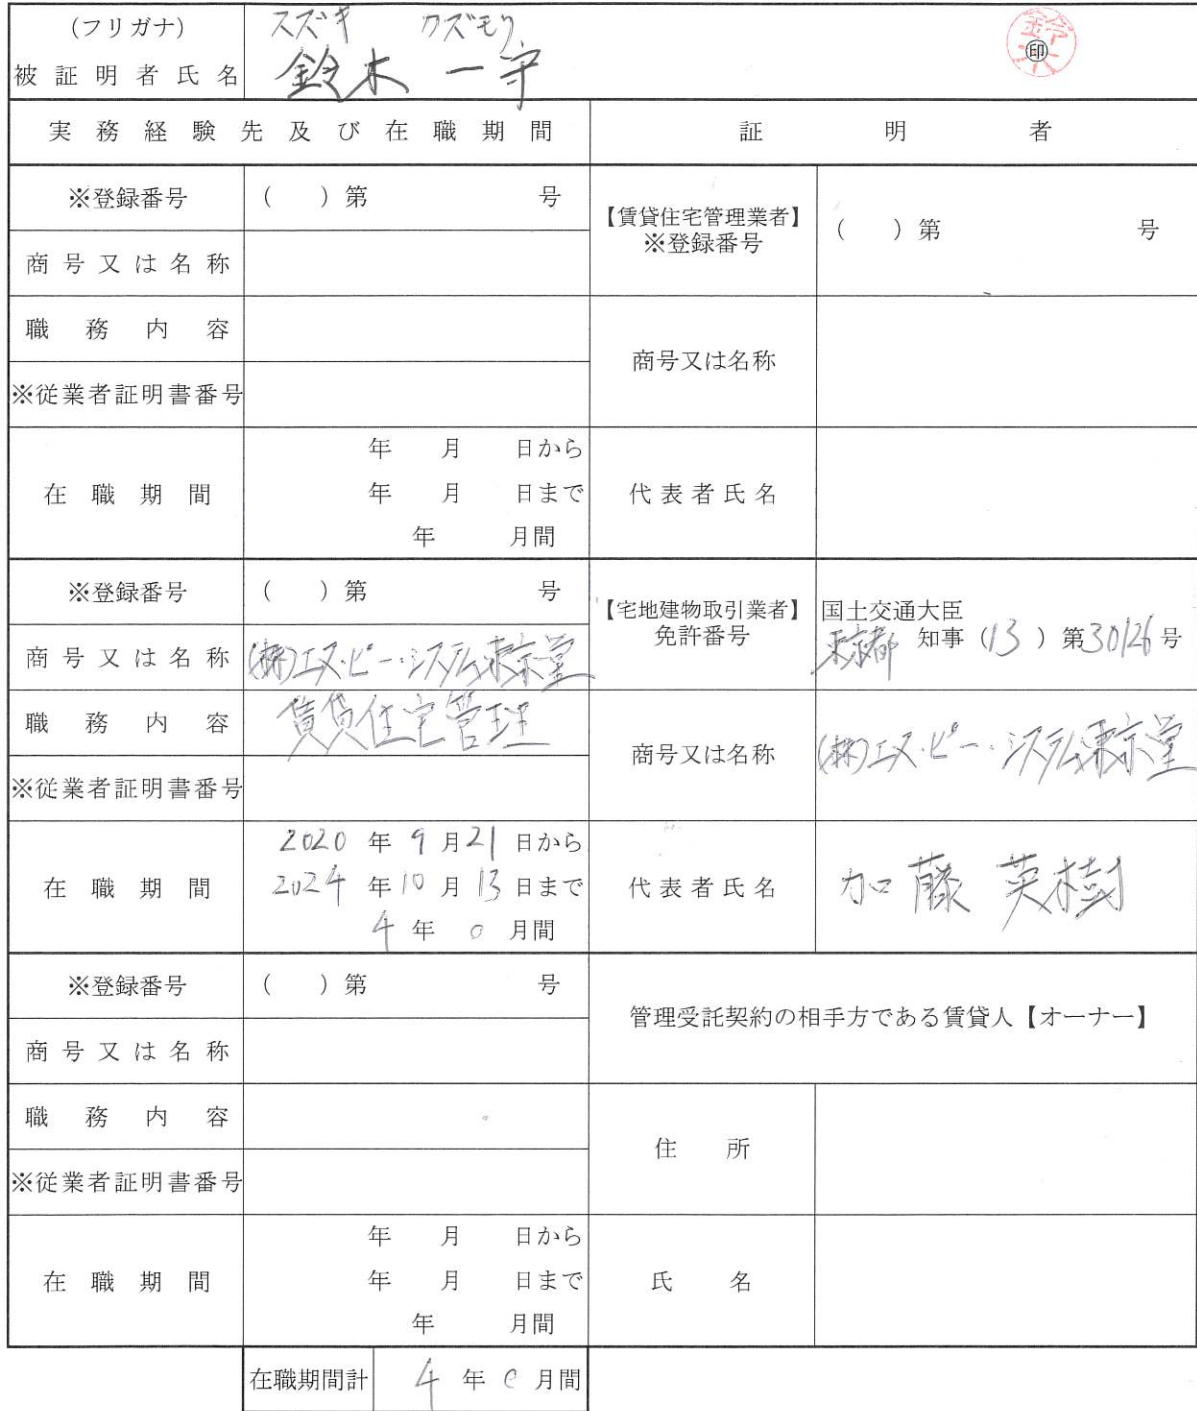 (フリガナ) スズキ カズモリ
被証明者氏名 鈴木 一守 ㊞
実務経験先及び在職期間 証明者
※登録番号 ( ) 第 号
【賃貸住宅管理業者】
※登録番号 ( ) 第 号
商号又は名称
職務内容
商号又は名称
※従業者証明書番号
在職期間
年 月 日から
年 月 日まで
年 月間
代表者氏名
※登録番号 ( ) 第 号
【宅地建物取引業者】
免許番号
国土交通大臣
東京都 知事 (13) 第30126号
商号又は名称 (株)エス・ピー・システム東京堂
職務内容 賃貸住宅管理
商号又は名称 (株)エス・ピー・システム東京堂
※従業者証明書番号
在職期間
2020 年 9 月 21 日から
2024 年 10 月 13 日まで
4 年 0 月間
代表者氏名 加藤 英樹
※登録番号 ( ) 第 号
管理受託契約の相手方である賃貸人【オーナー】
商号又は名称
職務内容
住所
※従業者証明書番号
在職期間
年 月 日から
年 月 日まで
年 月間
氏名
在職期間計 4 年 0 月間